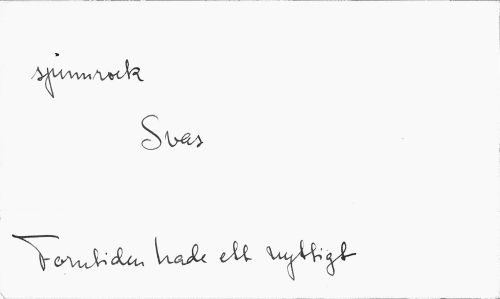 spinnrock
Svas
Forntiden hade ett nyttigt